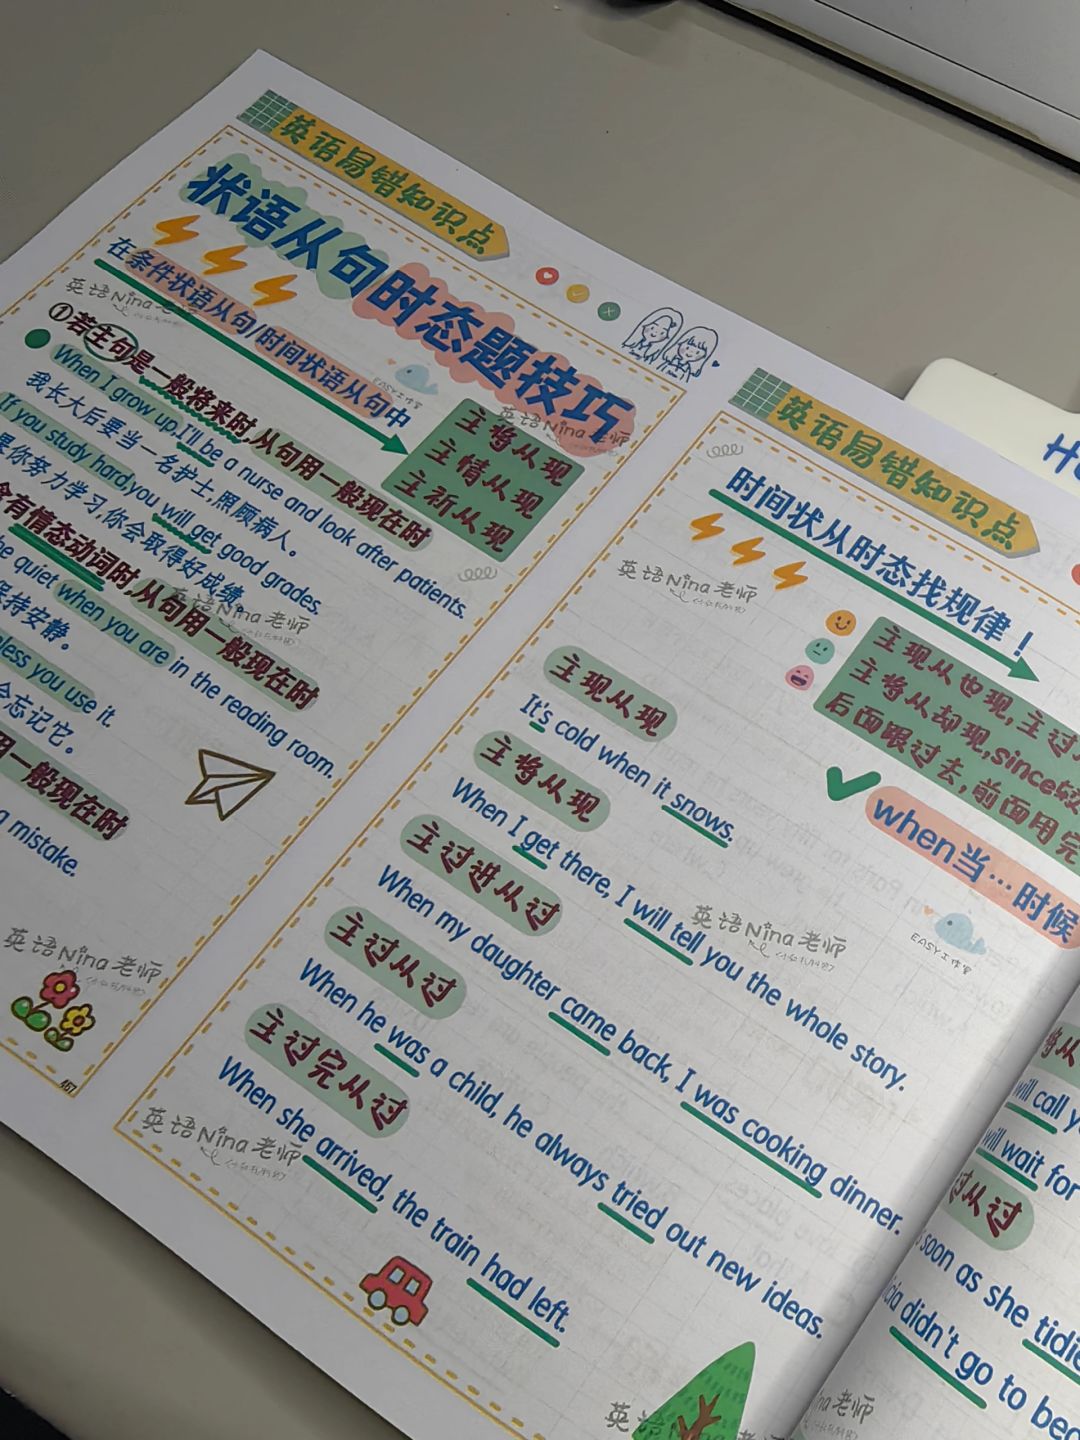 英语易错知识点
状语从句时态题技巧
在条件状语从句/时间状语从句中
主将从现
主情从现
主祈从现
①若主句是一般将来时,从句用一般现在时
When I grow up,I'll be a nurse and look after patients.
我长大后要当一名护士,照顾病人。
If you study hard,you will get good grades.
你努力学习,你会取得好成绩。
含有情态动词时,从句用一般现在时
quiet when you are in the reading room.
保持安静。
you use it.
忘记它。
用一般现在时
a mistake.
英语Nina老师
EASY工作室
英语Nina老师
英语Nina老师
英语Nina老师
467
英语易错知识点
时间状从时态找规律!
英语Nina老师
主现从也现,主过
主将从却现,since
后面跟过去,前面用完
when当…时候
主现从现
It's cold when it snows.
主将从现
When I get there, I will tell you the whole story.
主过进从过
When my daughter came back, I was cooking dinner.
主过从过
When he was a child, he always tried out new ideas.
主过完从过
When she arrived, the train had left.
英语Nina老师
EASY工作室
英语Nina老师
will call
will wait for
过从过
soon as she
didn't go to